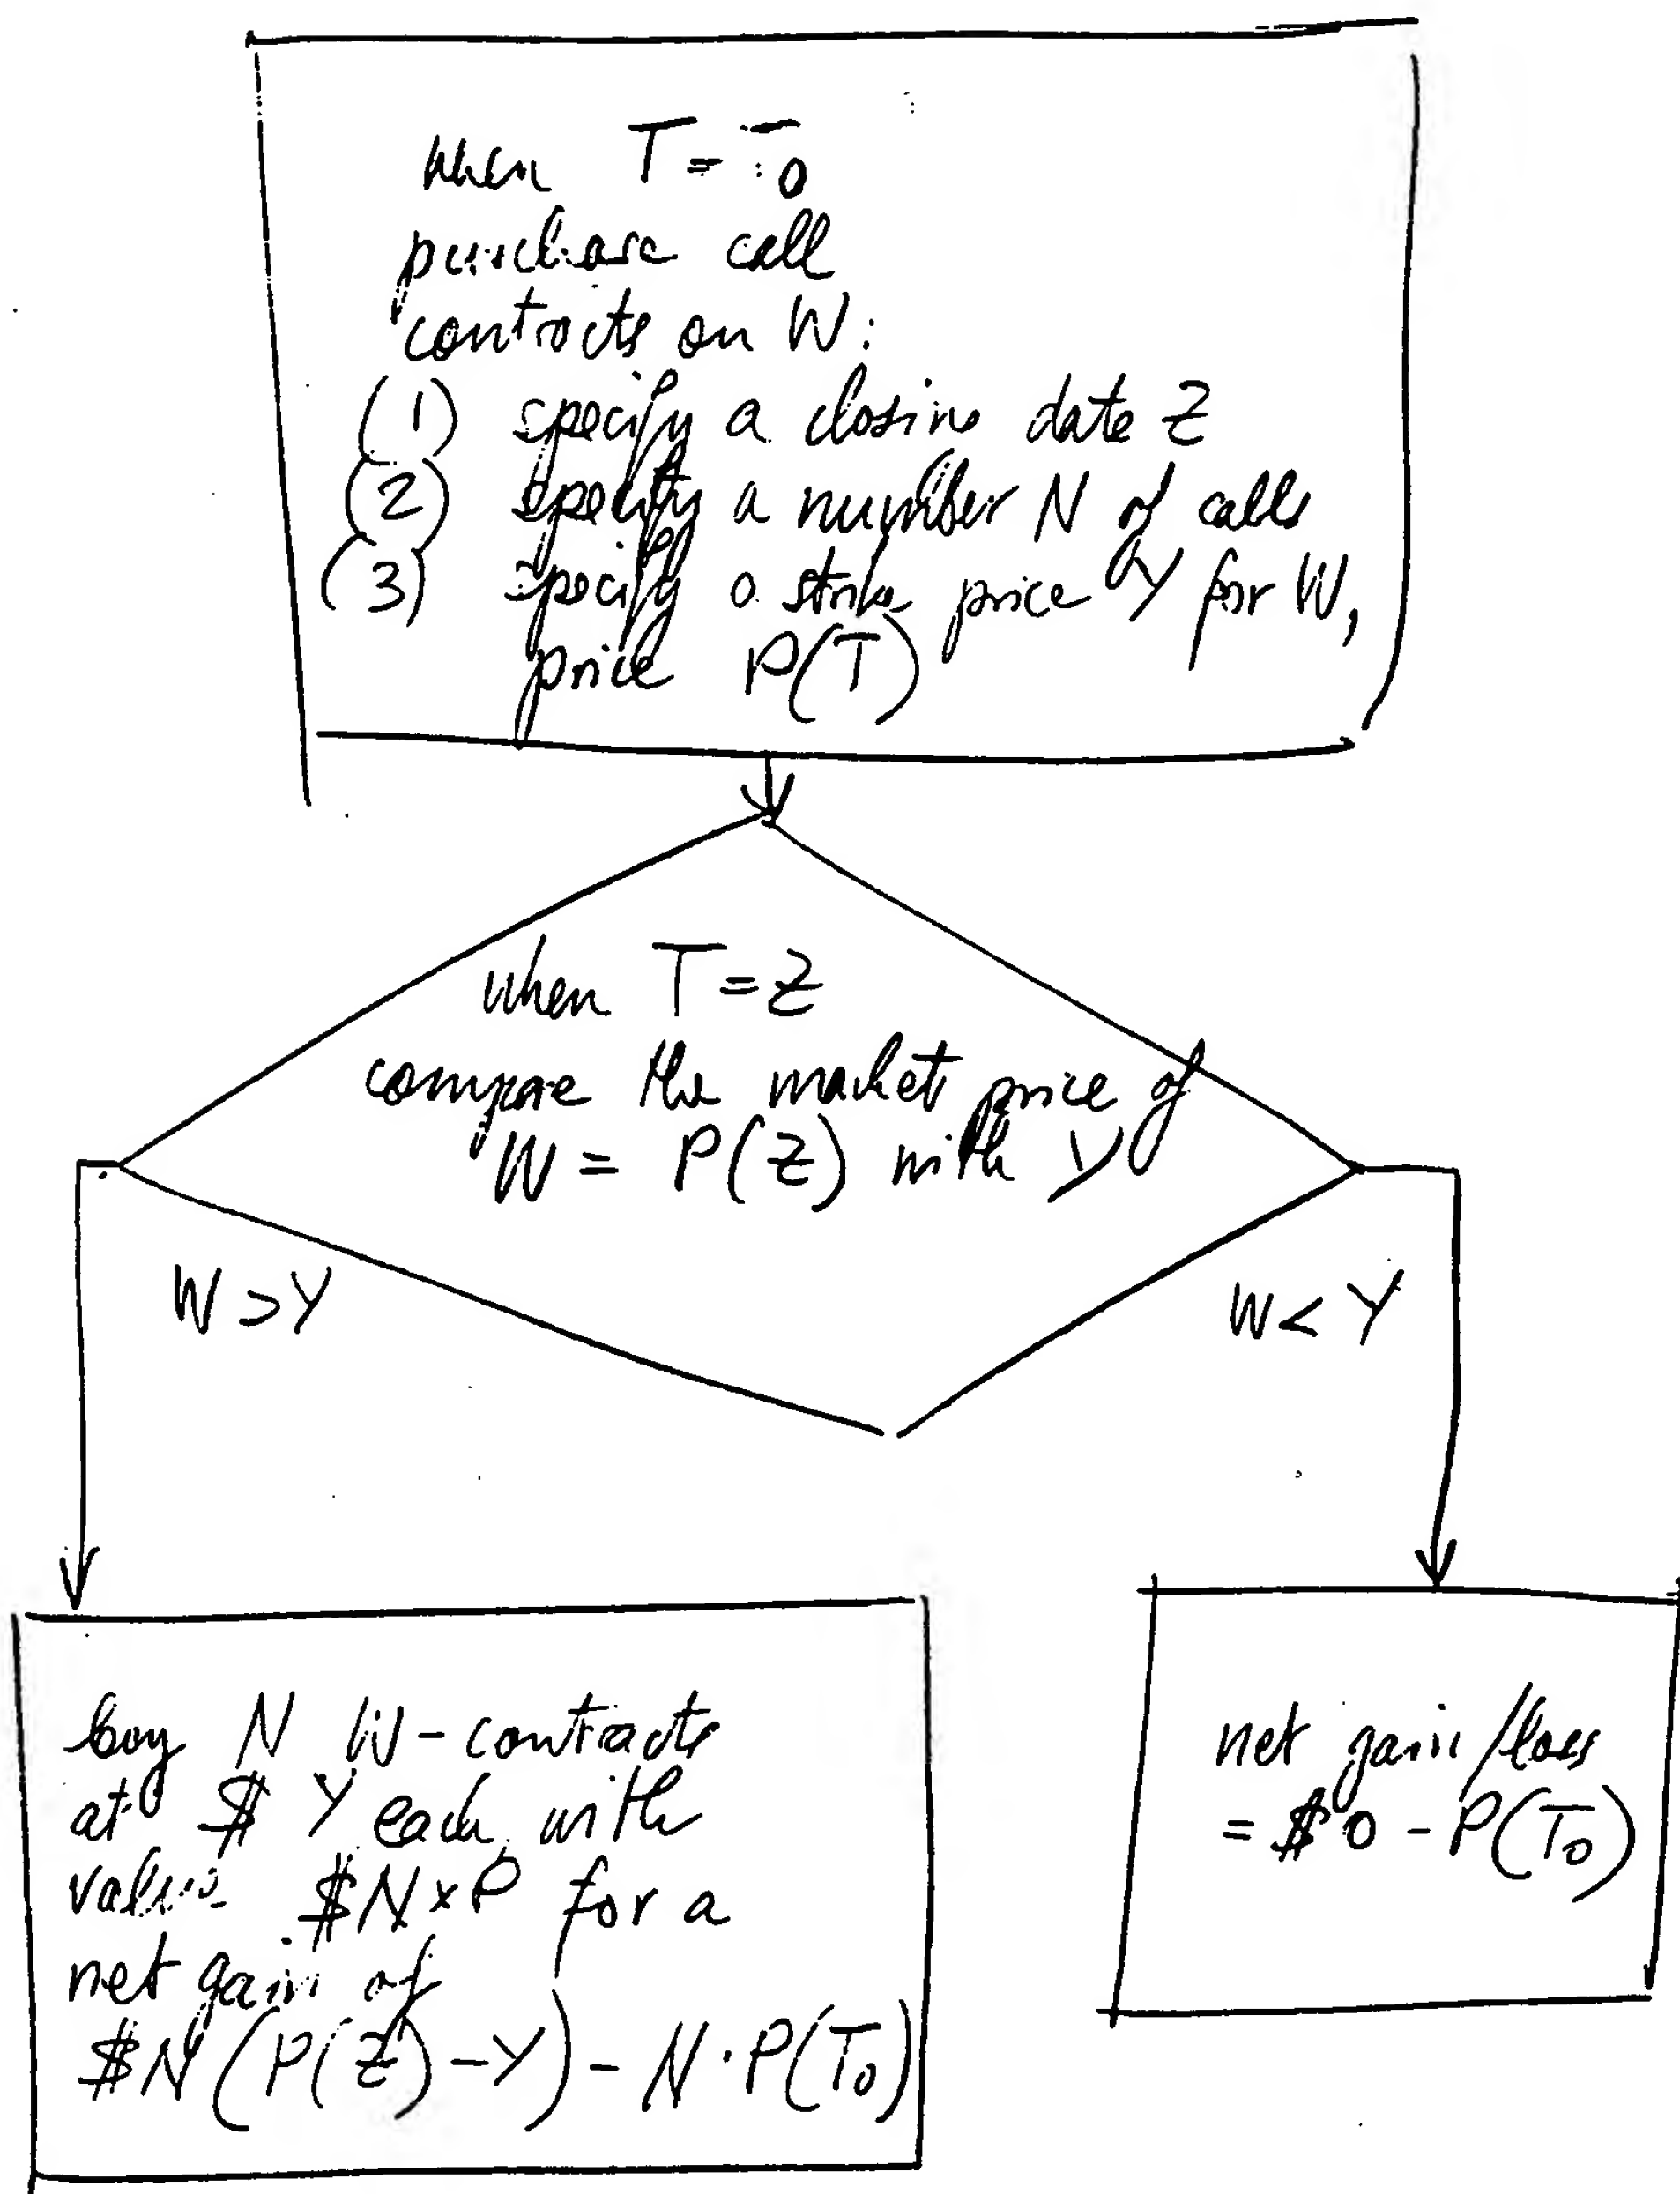 when T = T₀
purchase call
contracts on W:
(1) specify a closing date Z
(2) specify a number N of calls
(3) specify a strike price Y for W,
price P(T)
when T = Z
compare the market price of
W = P(Z) with Y
W > Y
W < Y
buy N W-contracts
at $ Y each, with
value $N × P for a
net gain of
$N(P(Z) - Y) - N · P(T₀)
net gain/loss
= $0 - P(T₀)